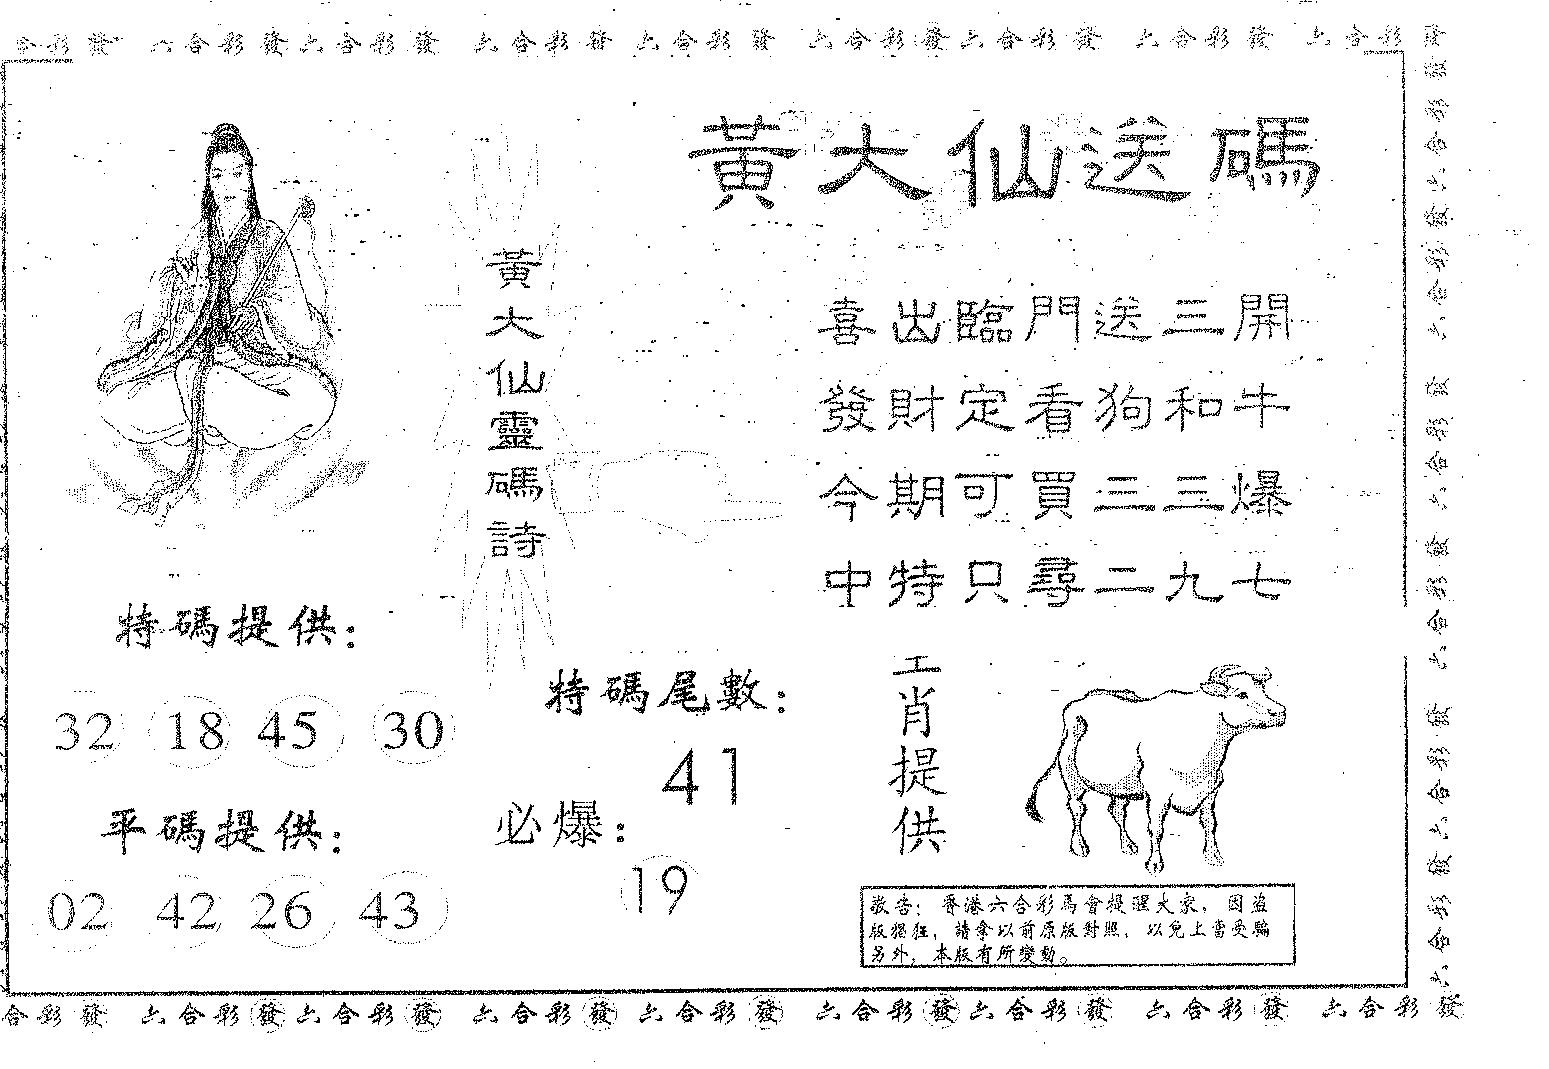 合彩發 六合彩發六合彩發 六合彩發 六合彩發 六合彩發六合彩發 六合彩發 六合彩發
黃大仙送碼
黃大仙靈碼詩
喜出臨門送三開
發財定看狗和牛
今期可買三三爆
中特只尋二九七
特碼提供：
32 18 45 30
平碼提供：
02 42 26 43
特碼尾數：
41
必爆：
19
工肖提供
敬告：香港六合彩馬會提醒大家，因盜
版猖狂，請拿以前原版對照，以免上當受騙
另外，本版有所變動。
發六合彩發六合彩發六合彩發六合彩發六合彩發六合彩發六
合彩發 六合彩發六合彩發 六合彩發 六合彩發 六合彩發六合彩發 六合彩發 六合彩發